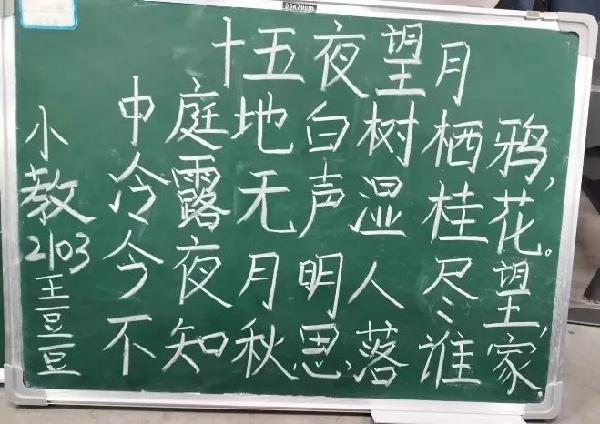 十五夜望月
中庭地白树栖鸦,
冷露无声湿桂花。
今夜月明人尽望,
不知秋思落谁家
小教
2103
王豆豆